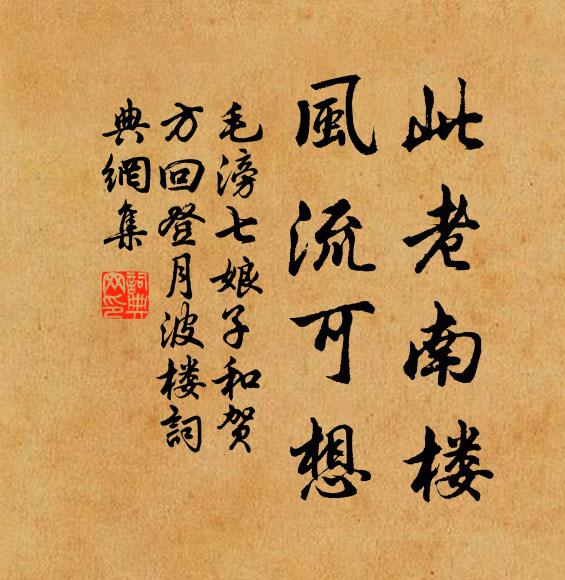 此老南楼
風流可想
毛滂七娘子和賀
方回登月波楼詞
典網集
詞典网印